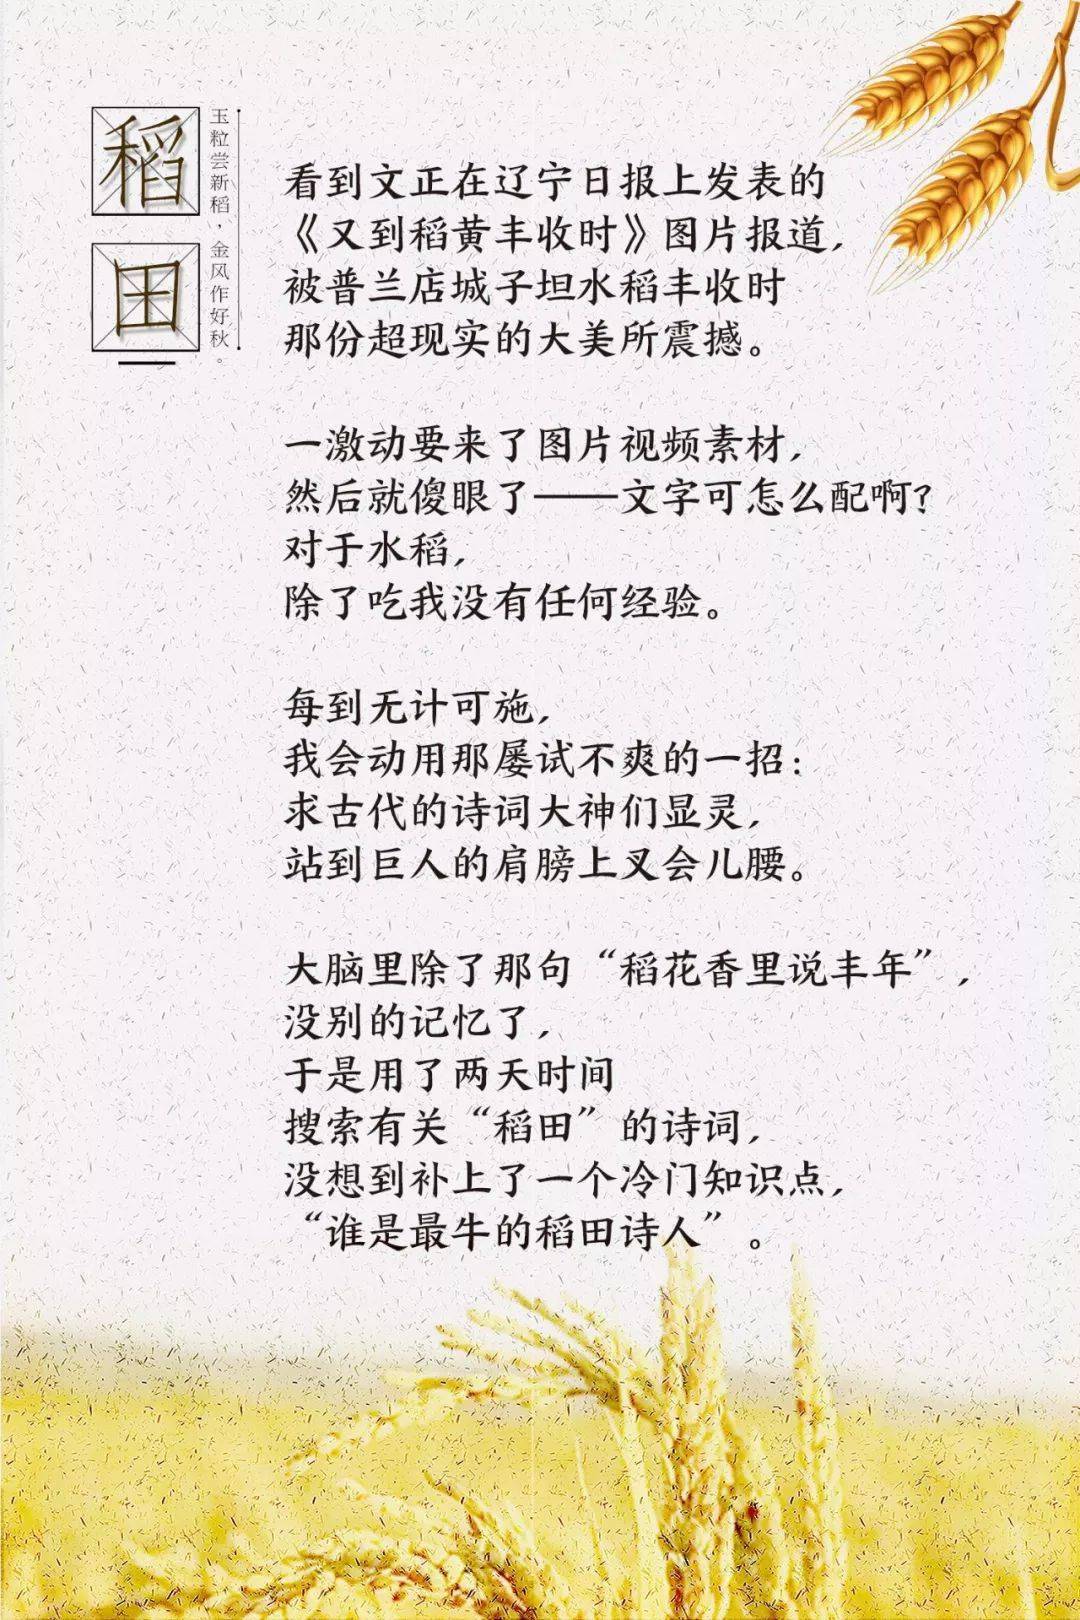 稻
田
玉粒尝新稻，金风作好秋。
看到文正在辽宁日报上发表的
《又到稻黄丰收时》图片报道，
被普兰店城子坦水稻丰收时
那份超现实的大美所震撼。
一激动要来了图片视频素材，
然后就傻眼了——文字可怎么配啊？
对于水稻，
除了吃我没有任何经验。
每到无计可施，
我会动用那屡试不爽的一招：
求古代的诗词大神们显灵，
站到巨人的肩膀上叉会儿腰。
大脑里除了那句“稻花香里说丰年”，
没别的记忆了，
于是用了两天时间
搜索有关“稻田”的诗词，
没想到补上了一个冷门知识点，
“谁是最牛的稻田诗人”。